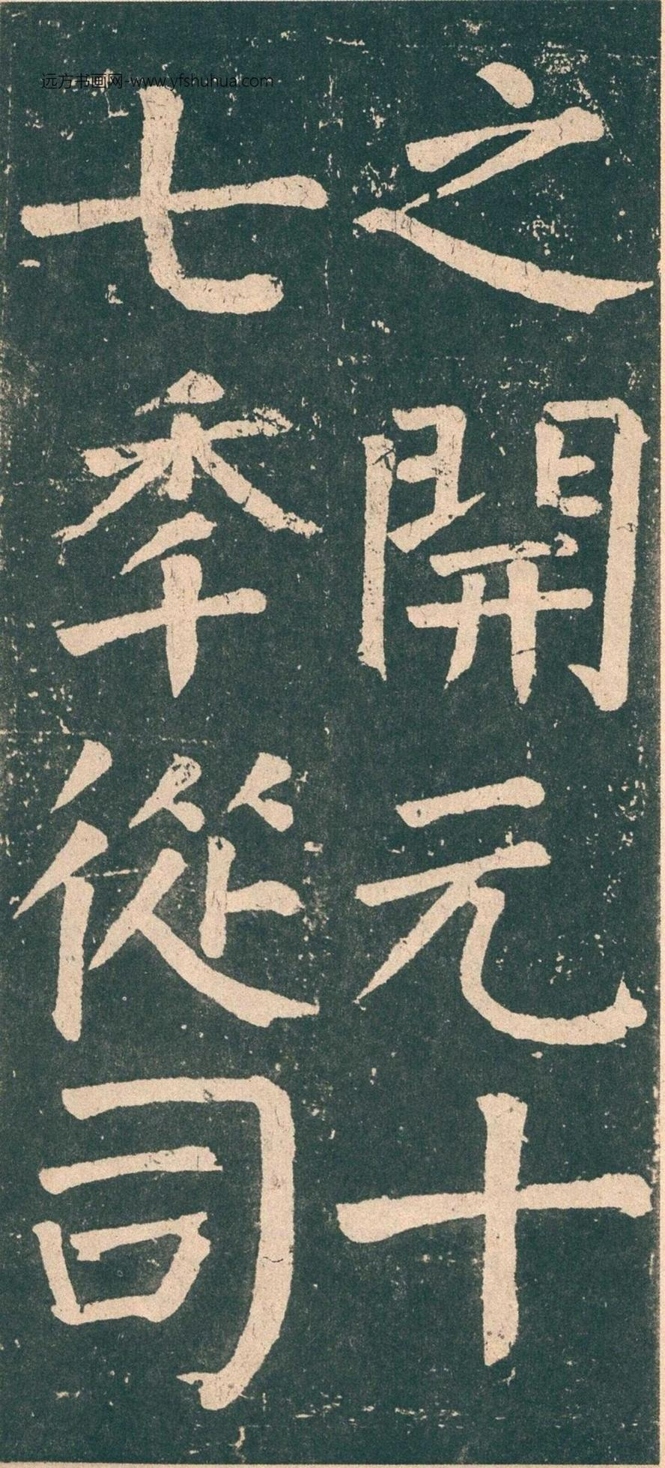 之開元十
七秊從司
远方书画网-www.yfshuhua.com